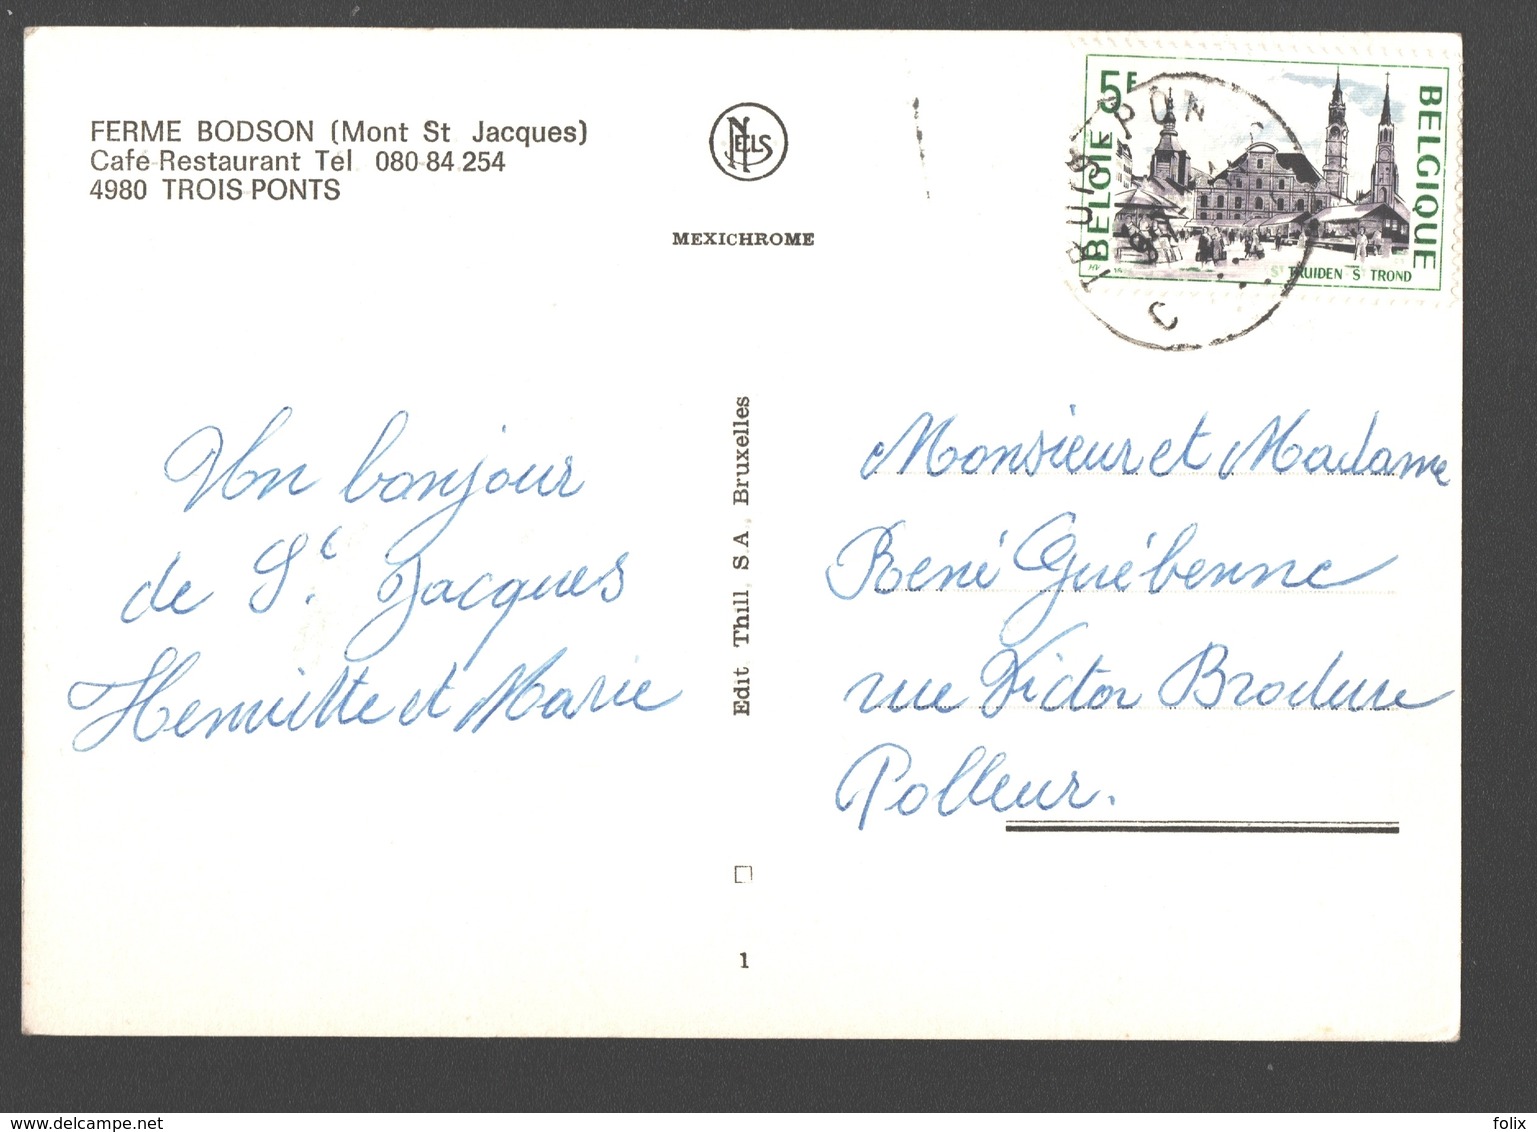 FERME BODSON (Mont St Jacques)
Café-Restaurant Tél 080-84.254
4980 TROIS-PONTS
NELS
MEXICHROME
5F
BELGIE
BELGIQUE
ST TRUIDEN ST TROND
Un bonjour
de St. Jacques
Henriette et Marie
Edit Thill, S.A. Bruxelles
1
Monsieur et Madame
René Guébenne
rue Victor Brodure
Polleur.
www.delcampe.net
folix